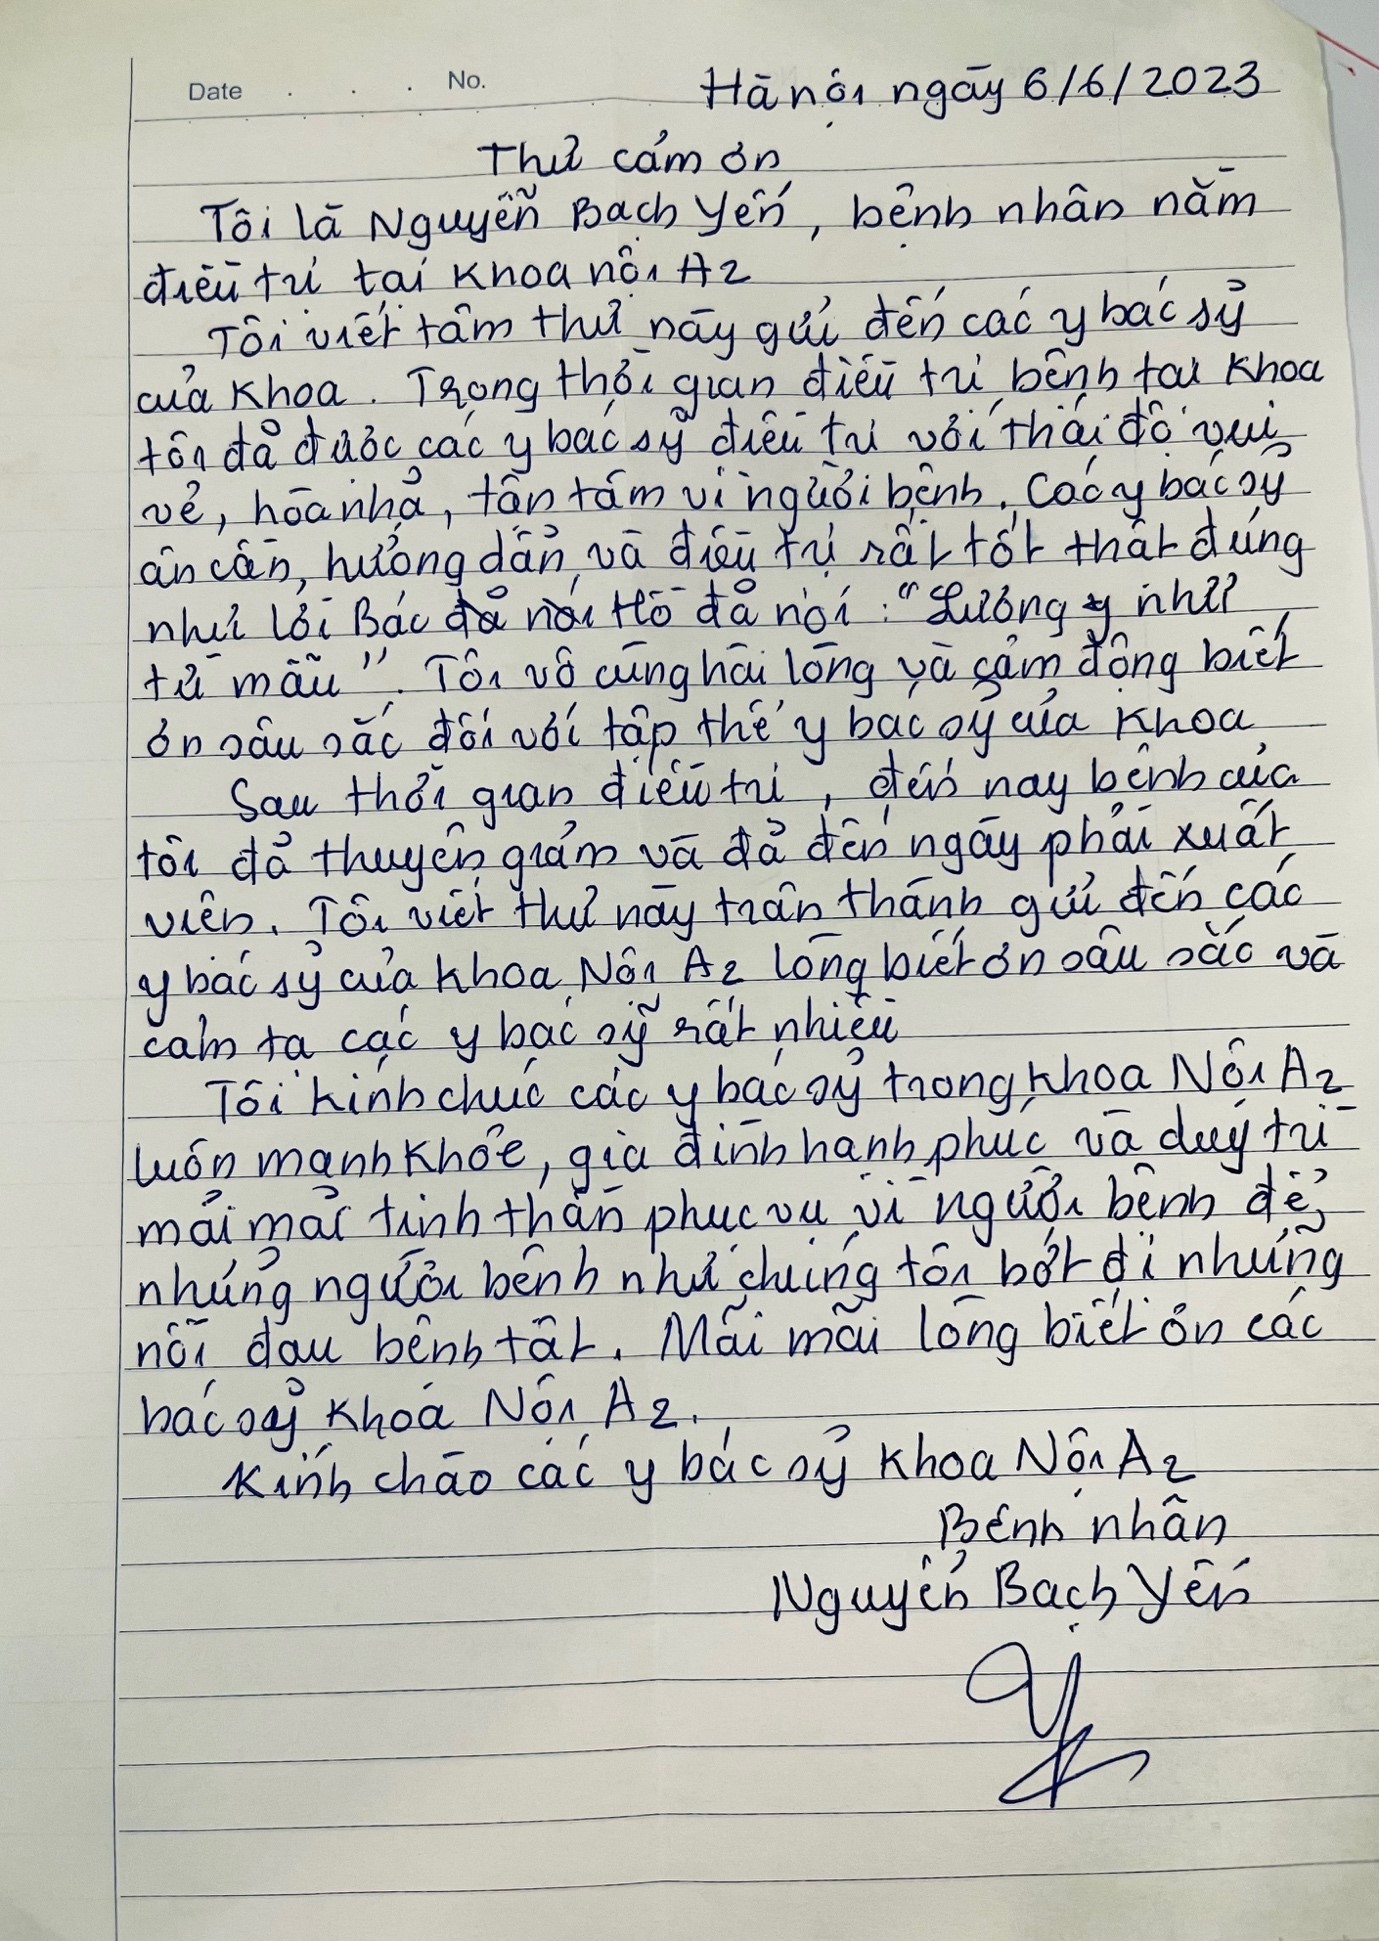 Date . . . No.
Hà nội ngày 6/6/2023
Thư cảm ơn
Tôi là Nguyễn Bạch Yến, bệnh nhân nằm
điều trị tại khoa nội A2
Tôi viết tâm thư này gửi đến các y bác sỹ
của khoa. Trong thời gian điều trị bệnh tại khoa
tôi đã được các y bác sỹ điều trị với thái độ vui
vẻ, hòa nhã, tận tâm vì người bệnh. Các y bác sỹ
ân cần, hướng dẫn và điều trị rất tốt thật đúng
như lời Bác đã nói Hồ đã nói: "Lương y như
từ mẫu". Tôi vô cùng hài lòng và cảm động biết
ơn sâu sắc đối với tập thể y bác sỹ của khoa
Sau thời gian điều trị, đến nay bệnh của
tôi đã thuyên giảm và đã đến ngày phải xuất
viện. Tôi viết thư này trân thành gửi đến các
y bác sỹ của khoa Nội A2 lòng biết ơn sâu sắc và
cảm tạ các y bác sỹ rất nhiều
Tôi kính chúc các y bác sỹ trong khoa Nội A2
luôn mạnh khỏe, gia đình hạnh phúc và duy trì
mãi mãi tinh thần phục vụ vì người bệnh để
những người bệnh như chúng tôi bớt đi những
nỗi đau bệnh tật. Mãi mãi lòng biết ơn các
bác sỹ khoa Nội A2.
Kính chào các y bác sỹ khoa Nội A2
Bệnh nhân
Nguyễn Bạch Yến